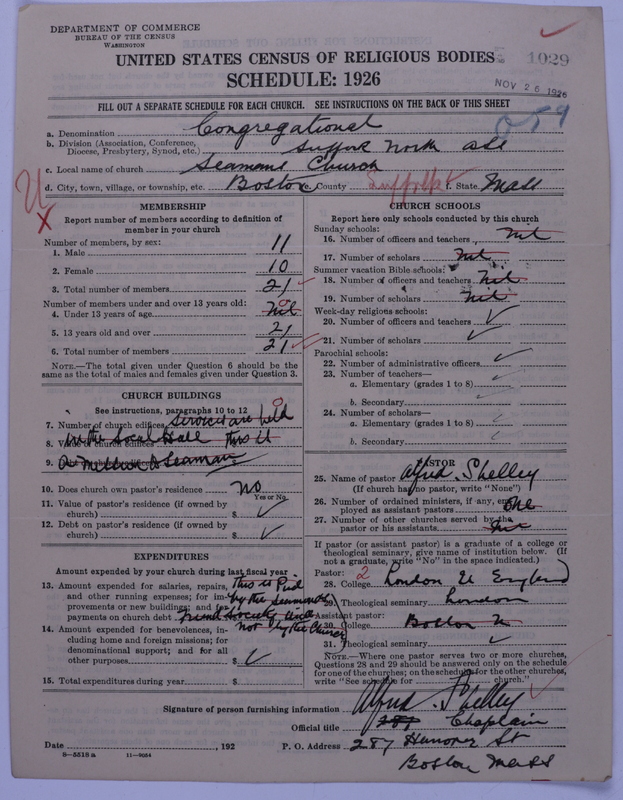 DEPARTMENT OF COMMERCE
BUREAU OF THE CENSUS
WASHINGTON
UNITED STATES CENSUS OF RELIGIOUS BODIES
1029
SCHEDULE: 1926
NOV 26 1926
FILL OUT A SEPARATE SCHEDULE FOR EACH CHURCH. SEE INSTRUCTIONS ON THE BACK OF THIS SHEET
059
a. Denomination Congregational
b. Division (Association, Conference, Diocese, Presbytery, Synod, etc.) Suffolk North Ass
c. Local name of church Seamens Church
d. City, town, village, or township, etc. Boston e. County Suffolk f. State Mass
U
X
MEMBERSHIP
Report number of members according to definition of
member in your church
Number of members, by sex:
1. Male 11
2. Female 10
3. Total number of members 21
Number of members under and over 13 years old:
4. Under 13 years of age nil 0
5. 13 years old and over 21
6. Total number of members 21
NOTE.—The total given under Question 6 should be the
same as the total of males and females given under Question 3.
CHURCH BUILDINGS
See instructions, paragraphs 10 to 12
7. Number of church edifices Services are held 0
8. Value of church edifices in the Local Hall this is
9. a Mission to Seaman
10. Does church own pastor's residence No
Yes or No
11. Value of pastor's residence (if owned by
church) $
12. Debt on pastor's residence (if owned by
church) $
EXPENDITURES
Amount expended by your church during last fiscal year
13. Amount expended for salaries, repairs, this is Paid
and other running expenses; for im- by the Seamans
provements or new buildings; and for
payments on church debt Friend Society and
not by the Church
14. Amount expended for benevolences, in-
cluding home and foreign missions; for
denominational support; and for all
other purposes $
15. Total expenditures during year $
CHURCH SCHOOLS
Report here only schools conducted by this church
Sunday schools:
16. Number of officers and teachers nil
17. Number of scholars nil
Summer vacation Bible schools:
18. Number of officers and teachers nil
19. Number of scholars nil
Week-day religious schools:
20. Number of officers and teachers
21. Number of scholars
Parochial schools:
22. Number of administrative officers
23. Number of teachers—
a. Elementary (grades 1 to 8)
b. Secondary
24. Number of scholars—
a. Elementary (grades 1 to 8)
b. Secondary
PASTOR
25. Name of pastor Alfred Shelley
(If church has no pastor, write "None")
26. Number of ordained ministers, if any, em-
ployed as assistant pastors One
27. Number of other churches served by the
pastor or his assistants nil
If pastor (or assistant pastor) is a graduate of a college or
theological seminary, give name of institution below. (If
not a graduate, write "No" in the space indicated.)
Pastor: 2
28. College London U England
29. Theological seminary London
Assistant pastor:
30. College Boston U
31. Theological seminary
NOTE.—Where one pastor serves two or more churches,
Questions 28 and 29 should be answered only on the schedule
for one of the churches; on the schedule for the other churches,
write "See schedule for church."
Signature of person furnishing information Alfred Shelley
Official title 287 Chaplain
Date , 192
P. O. Address 287 Hanover St
Boston Mass
8—5518 a 11—9054